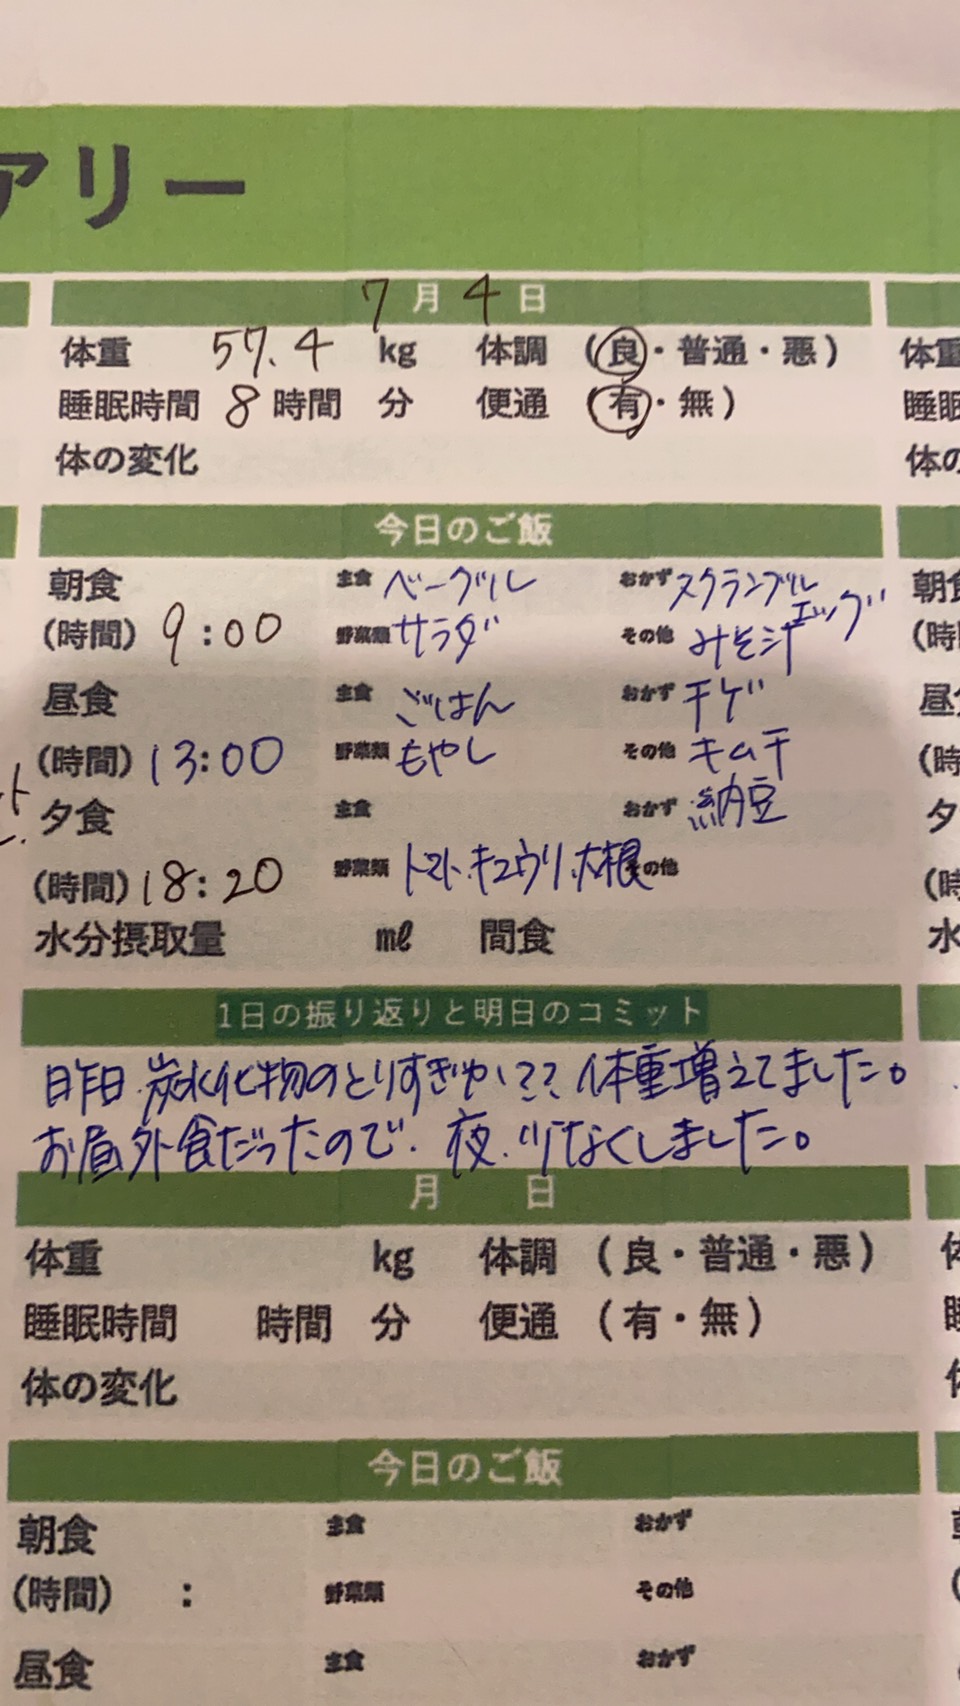 アリー
7月4日
体重 57.4 kg 体調 (良・普通・悪) 体重
睡眠時間 8時間 分 便通 (有・無) 睡眠
体の変化 体の
今日のご飯
朝食 主食 ベーグル おかず スクランブルエッグ 朝食
(時間) 9:00 野菜類 サラダ その他 みそ汁 (時間
昼食 主食 ごはん おかず チゲ 昼食
(時間) 13:00 野菜類 もやし その他 キムチ (時
夕食 主食 おかず 納豆 夕
(時間) 18:20 野菜類 トマト、キュウリ、大根 その他 (時
水分摂取量 ml 間食 水
1日の振り返りと明日のコミット
昨日、炭水化物のとりすぎか、??体重増えてました。
お昼外食だったので、夜、少なくしました。
月 日
体重 kg 体調 (良・普通・悪) 体
睡眠時間 時間 分 便通 (有・無) 睡
体の変化 体
今日のご飯
朝食 主食 おかず
(時間) : 野菜類 その他
昼食 主食 おかず